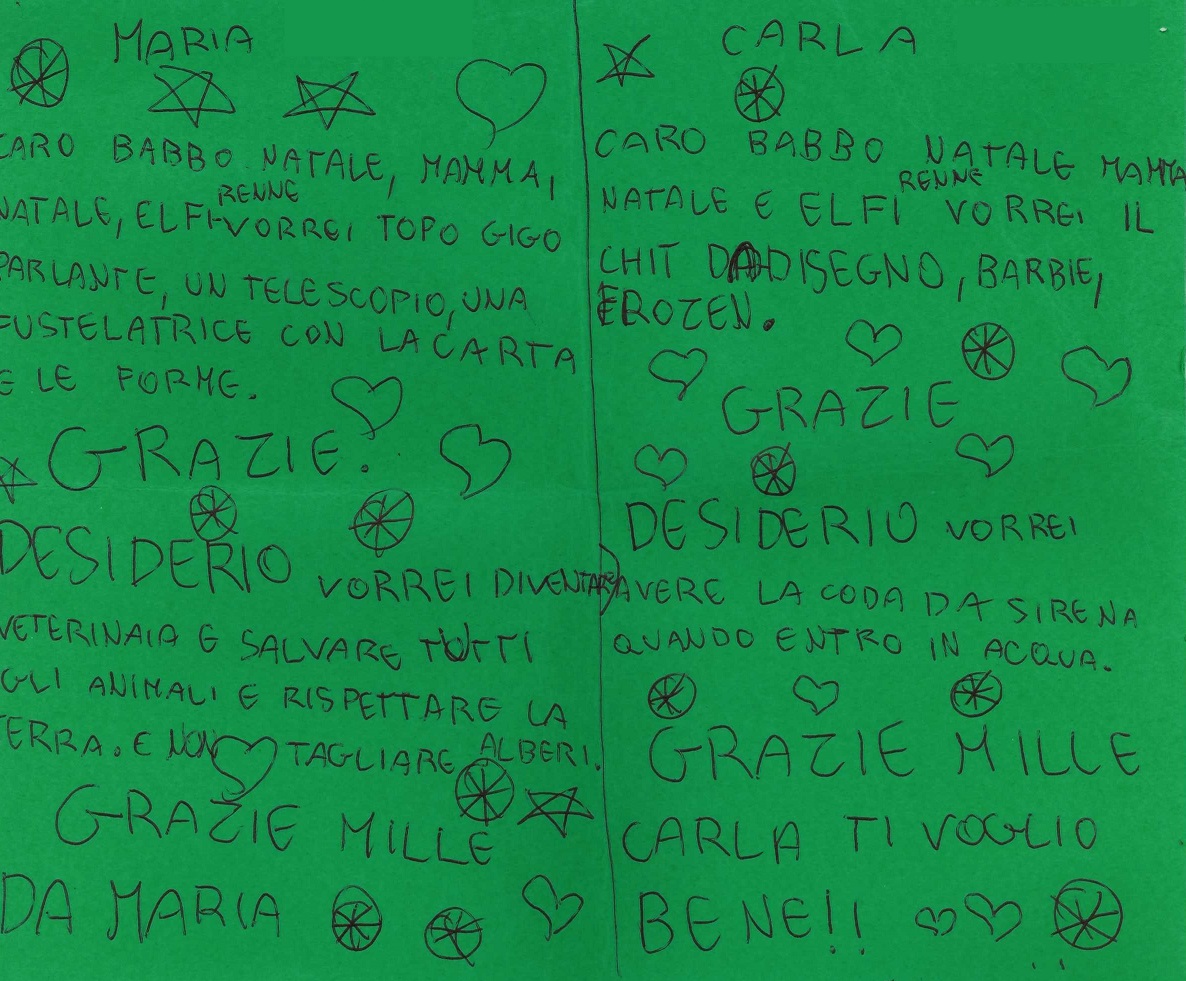 MARIA
CARO BABBO NATALE, MAMMA,
RENNE
NATALE, ELFI-VORREI TOPO GIGO
PARLANTE, UN TELESCOPIO, UNA
FUSTELATRICE CON LA CARTA
E LE FORME.
GRAZIE.
DESIDERIO VORREI DIVENTARE
VETERINAIA E SALVARE TUTTI
GLI ANIMALI E RISPETTARE LA
TERRA. E NON TAGLIARE ALBERI.
GRAZIE MILLE
DA MARIA
CARLA
CARO BABBO NATALE MAMMA
RENNE
NATALE E ELFI VORREI IL
CHIT DA DISEGNO, BARBIE,
FROZEN.
GRAZIE
DESIDERIO VORREI
AVERE LA CODA DA SIRENA
QUANDO ENTRO IN ACQUA.
GRAZIE MILLE
CARLA TI VOGLIO
BENE!!